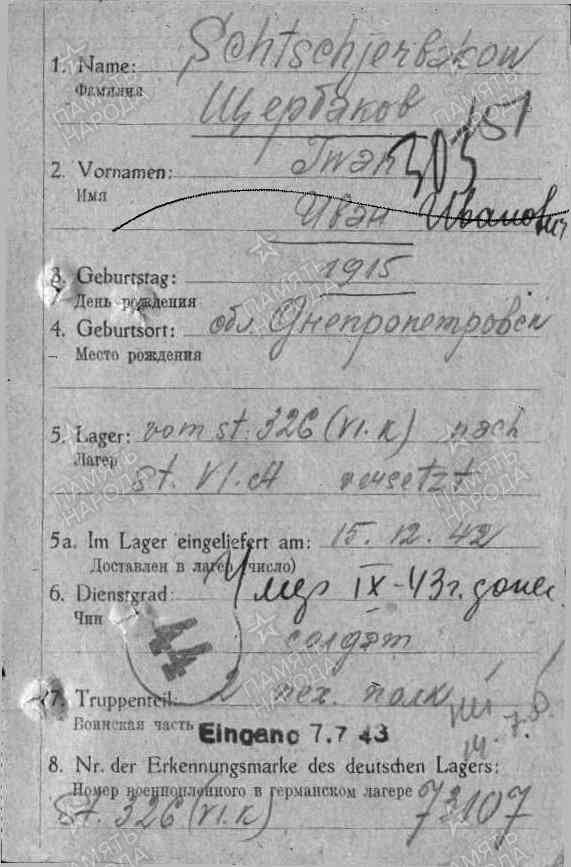 Schtschjerbakow
1. Name:
Фамилия
Щербаков
151
2. Vornamen: Iwan 303
Имя
Иван Иванович
3. Geburtstag: 1915
День рождения
4. Geburtsort: обл. Днепропетровск
Место рождения
5. Lager: vom st. 326 (VI. K) nach
Лагер
st. VI. A versetzt
5a. Im Lager eingeliefert am: 15. 12. 42
Доставлен в лагер (число)
6. Dienstgrad: Умер IX-43г. донес
Чин
солдат
44
7. Truppenteil: 2 пех. полк
Воинская часть Eingang 7.7 43
8. Nr. der Erkennungsmarke des deutschen Lagers:
Номер военнопленного в германском лагере 73107
St. 326 (VI. K)
ПАМЯТЬ НАРОДА